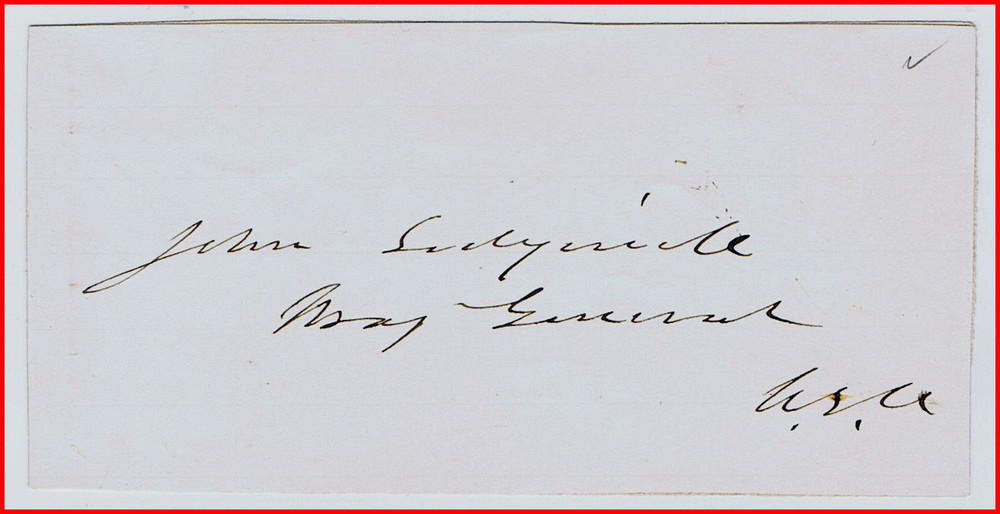 John Sedgwick
Maj General
U.S.A